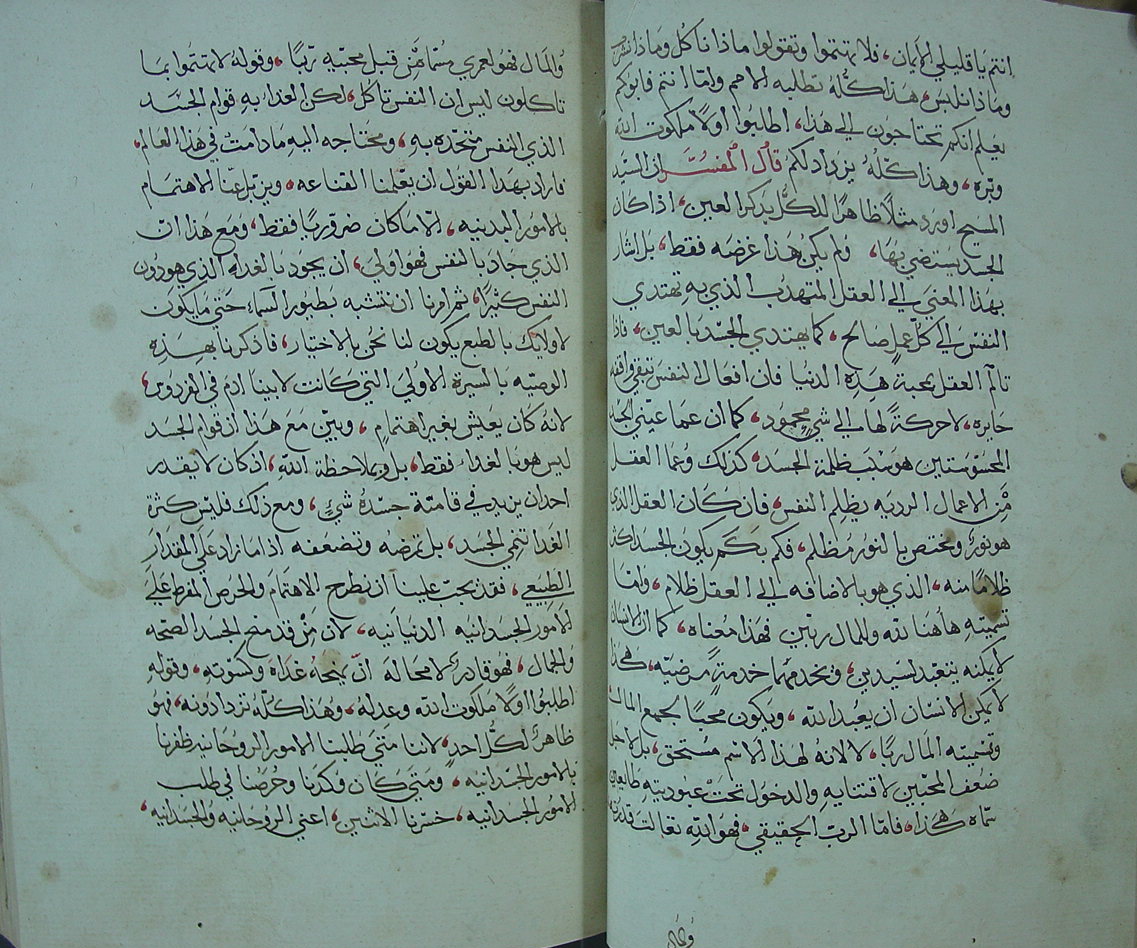 انتم يا قليلي الايمان، فلا تهتموا وتقولوا ماذا ناكل وماذا نشرب
وماذا نلبس، هذا كله تطلبه الامم وامّا انتم فابوكم
يعلم انكم تحتاجون الي هذا، اطلبوا اولًا ملكوت الله
وبره، وهذا كلّهُ يزداد لكم قال المفسّر ان السيّد
المسيح اورد مثلًا ظاهرًا للكل بذكر العين، اذ كان
الجسد يستضي بها، ولم يكن هذا غرضه فقط، بل اشار
بهذا المعني الي العقل المتهدب الذي به تهتدي
النفس الي كل عمل صالح، كما يهتدي الجسد بالعين، فاذا
تالم العقل بمحبة هذه الدنيا فان افعال النفس تبقي واقفه
حايره، لا حركةً لها الي شيٍ محمود، كما ان عما عيني الجسد
المحسوستين هو سبب ظلمة الجسد، كذلك وعما العقل
مّن الاعمال الرديه يظلم النفس، فان كان العقل الذي
هو نورٌ ومختص بالنور مُظلم، فكم بكم يكون الجسد اكثر
ظلامًا منه، الذي هو بالاضافه الي العقل ظلام، وامّا
تسميته هاهنا لله وللمال ربين فهذا معُناه، كما ان الانسان
لا يمكنه يتعبد لسيدين، ويخدمهما خدمةً مرضيّه، هكذا
لا يمكن الانسان ان يعبد الله، ويكون محبًا لجمع المال،
وتسميته المال ربًا، لا لانهُ لهذا الاسم مُستحق، بل لاجل
ضعف المحبّين لاقتنايه والدخول تحت عبوديته طايعين
سمّاه هكذا، فامّا الربّ الحقيقي، فهو الله تعالت قدرته
والمال فهو لعمري مسُمّا مّن قبل محبّيه ربًا، وقولهُ لا تهتموا بما
تاكلون ليس ان النفس تاكل، لكن الغذا به قوام الجسد
الذي النفس متحّده به، ومحتاجه اليهِ ما دامتْ في هذا العالم،
فاراد بهذا القول ان يعّلمنا القناعه، ويزيل عنّا الاهتمام
بالامور البدنيه، الّا ما كان ضروريًا فقط، ومع هذا انّ
الذي جاد بالنفس فهو اولي، ان يجود بالغداء الذي هو دون
النفس كثيرًا، ثم امرنا ان نتشبه بطيور السماء حتي ما يكون
لاولايك بالطبع يكون لنا نحن بالاختيار، فاذكرنا بهذه
الوصيّه بالسيرة الاولي التي كانت لابينا ادم في الفردوس،
لانه كان يعيش بغير اهتمام، وبيّن مَعَ هذا ان قوام الجسد
ليس هو بالغداء فقط، بل وبملاحظة الله، اذ كان لا يقدر
احد ان يزيد في قامتهِ جسَدهُ شيءٍ، ومع ذلك فليس كثرة
الغدا تنمي الجسد، بل تمرضه وتضعفه اذا ما زاد علَي المقدار
الطبيعي، فقد يجب علينا ان نطرح الاهتمام والحرص المفرط علَي
الامور الجسدانيه الدنيانيه، لان مّن قد منح الجسد الصحّه
والجمال، فهو قادرٌ لا محالة ان يمنحهُ غداه وكسوته، وقوله
اطلبوا اولًا ملكوت الله وعدلهُ، وهذا كلّه تزدادونه، فهوُ
ظاهرٌ لكل احدٍ، لاننا متي طلبنا الامور الروحانيه ظفرنا
بالامور الجسدانيه، ومتي كان فكرنا وحُرصنا في طلب
الامور الجسدانيه، خسرنا الاثنين، اعني الروحانيه والجسدانيه،